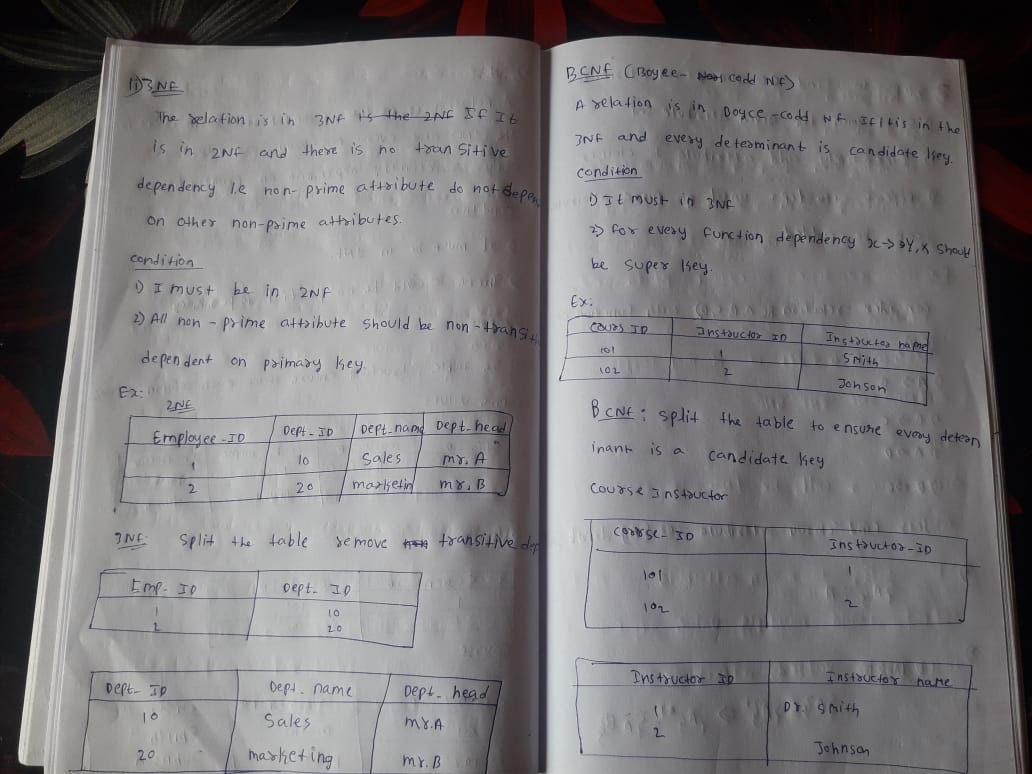 11) 3NF
The relation is in 3NF is the 2NF If It
is in 2NF and there is no transitive
dependency i.e non-prime attribute do not depen
on other non-prime attributes.
condition
1) I must be in 2NF
2) All non-prime attribute should be non-transiti
dependent on primary key
Ex:
2NF
Employee-ID Dept-ID Dept-name Dept-head
1 10 Sales mr. A
2 20 marketin mr. B
3NF: Split the table remove transitive dep
Emp-ID Dept-ID
1 10
2 20
Dept-ID Dept. name Dept-head
10 Sales mr.A
20 marketing mr.B
BCNF (Boyee- codd NF)
A relation is in Boyce-codd NF If it is in the
3NF and every determinant is candidate key.
condition
1) It must in 3NF
2) for every function dependency x->Y, x shoul
be super key.
Ex:
Cours ID Instructor ID Instructor name
101 1 Smith
102 2 Johson
BCNF: split the table to ensure every deteam
inant is a candidate key
Course Instructor
Course-ID Instructor-ID
101 1
102 2
Instructor ID Instructor name
1 Dr. Smith
2 Johnson